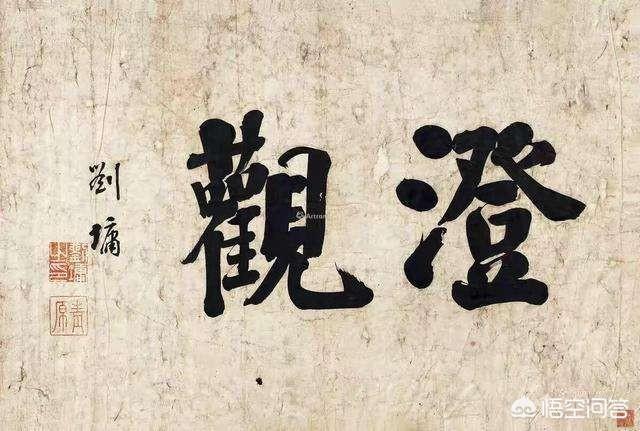 澄觀
劉墉
Artron
悟空问答